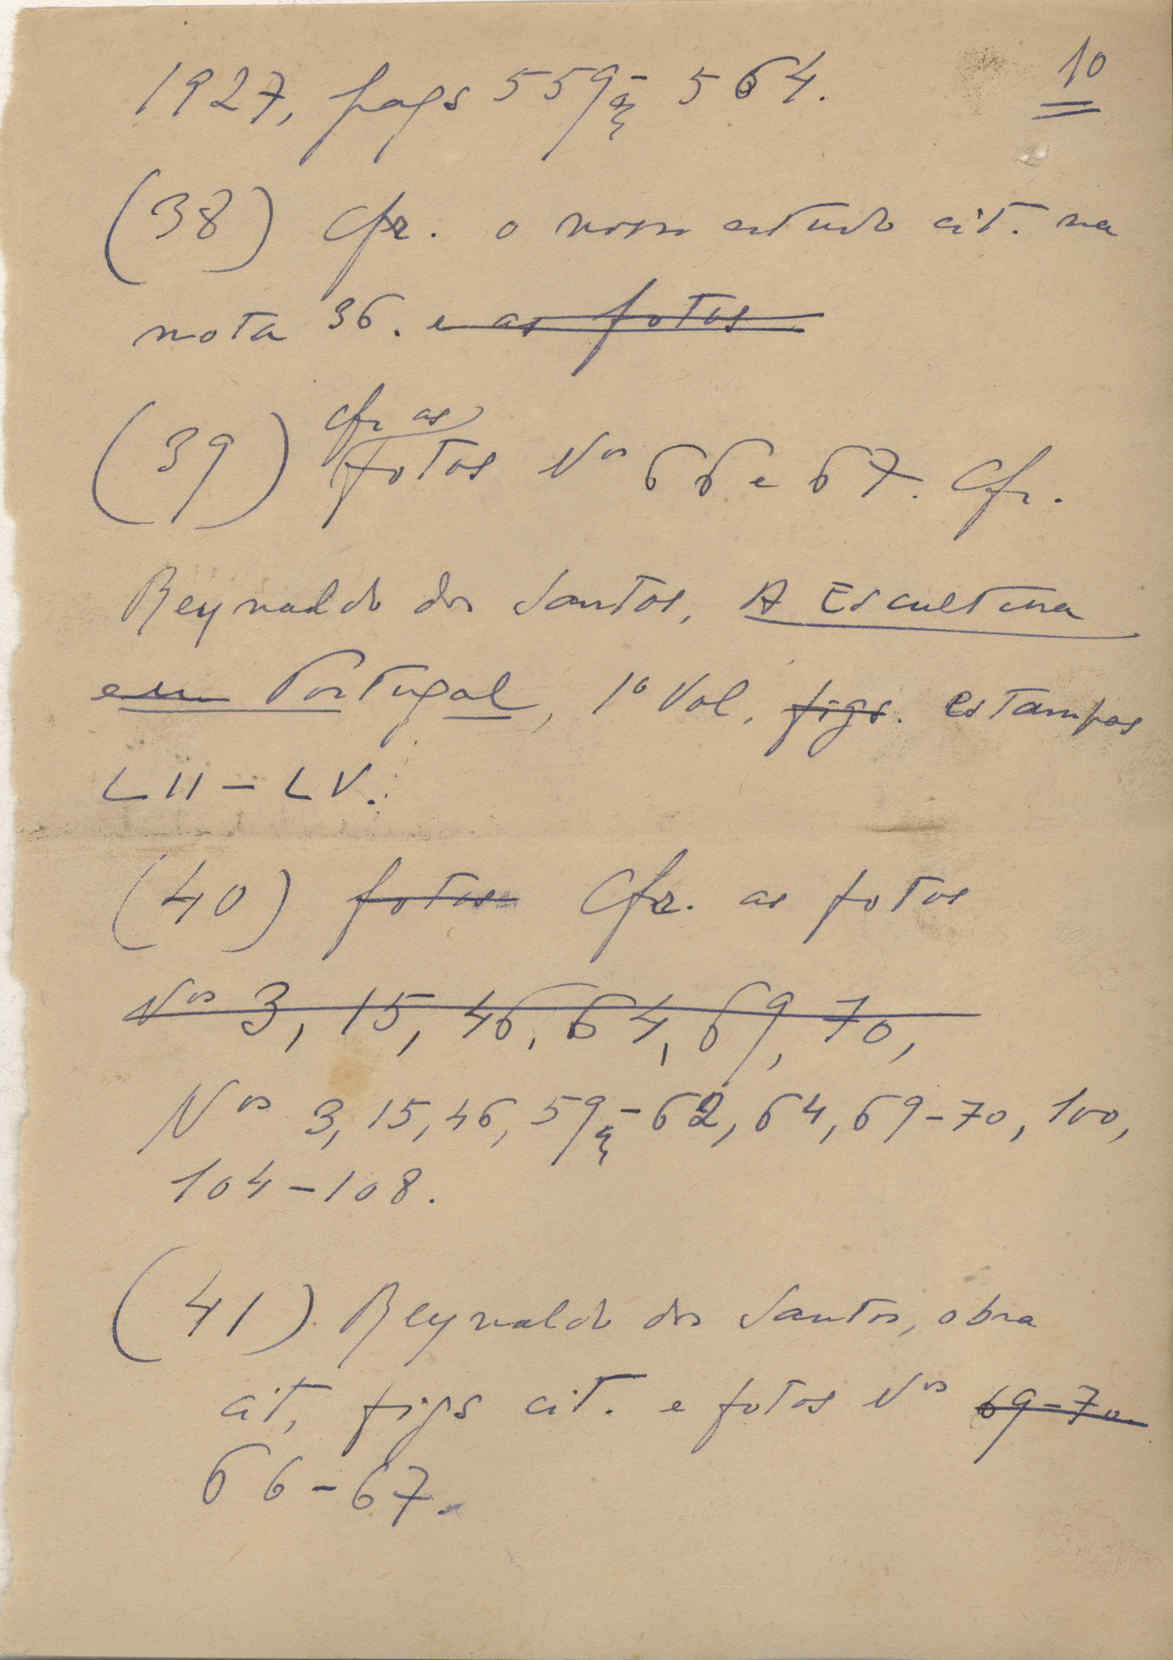 10
1927, pags 559-564.
(38) Cfr. o nosso estudo cit. na
nota 36. e as fotos
cfr as
(39) fotos Nos 66 e 67. Cfr.
Reynaldo dos Santos, A Escultura
em Portugal, 1º Vol. figs. estampas
LII - LV.
(40) fotos Cfr. as fotos
Nos 3, 15, 46, 64, 69, 70,
Nos 3, 15, 46, 59-62, 64, 69-70, 100,
104-108.
(41) Reynaldo dos Santos, obra
cit, figs cit. e fotos Nos 69-70
66-67.